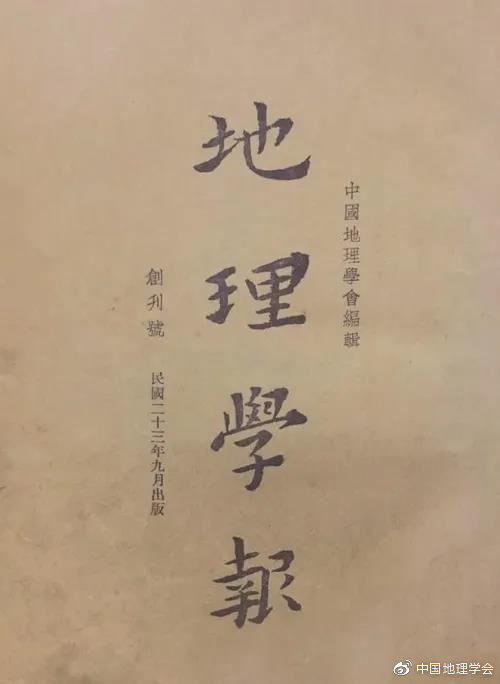 中國地理學會編輯
地理學報
創刊號 民國二十三年九月出版
中国地理学会